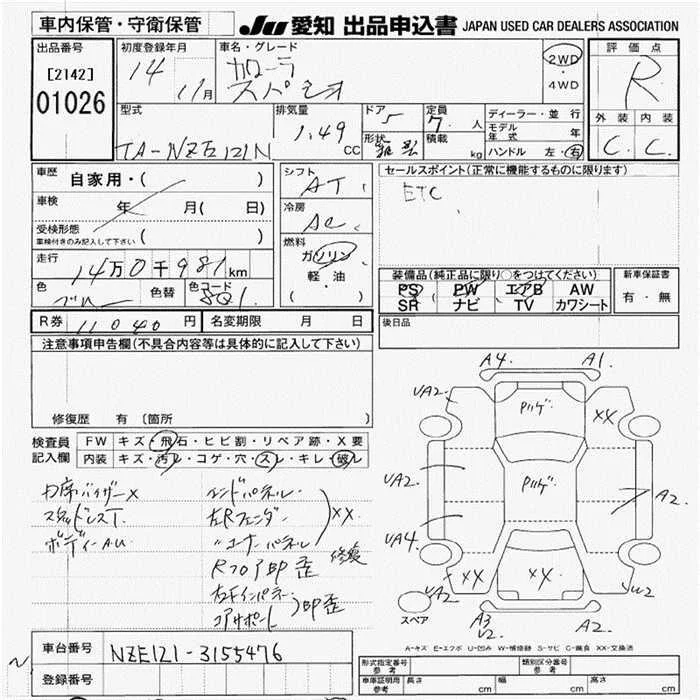 車内保管・守衛保管
JU 愛知 出品申込書 JAPAN USED CAR DEALERS ASSOCIATION
出品番号
[2142]
01026
初度登録年月
14
11月
車名・グレード
カローラ
スパシオ
2WD
・
4WD
評価点
R
外装 内装
C. C.
型式
TA-NZE121N
排気量
1.49
CC
ドア 5
形状
定員
7. 人
積載
kg
ディーラー・並行
モデル年式 年
ハンドル 左・右
車歴
自家用・( )
車検
年 月( 日)
受検形態
車検付きのみ記入して下さい ( )
走行
14万0千981km
色
ブルー
色替
色コード
8Q1
シフト
AT
冷房
AC
燃料
ガソリン
軽・油
( )
セールスポイント(正常に機能するものに限ります)
ETC
装備品(純正品に限り○をつけてください)
PS PW エアB AW
SR ナビ TV カワシート
新車保証書
有・無
R券 11040 円
名変期限 月 日
後日品
注意事項申告欄(不具合内容等は具体的に記入して下さい)
修復歴 有 〔箇所
検査員
記入欄
FW キズ・飛石・ヒビ割・リペア跡・X要
内装 キズ・汚レ・コゲ・穴・スレ・キレ・破レ
スタッドレスT.
ボディーAU
エンドパネル
左Rフェンダー
〃コーナーパネル
XX
Rフロア即 歪 修復
右Fインパネ
コアサポート
即歪
A4. A1.
UA2. PルゲXX
UA2. Pルゲ. A2.
UA4.
UA2 XX XX. U2
スペア
A3 A2
U2
A-キズ E-エクボ U-凹み W-補修跡 S-サビ C-腐食 XX-交換済
車台番号 NZE121-3155476
登録番号
形式指定番号 参考
類別区分番号 参考
車庫証明用 参考
長さ cm
幅 cm
高さ cm